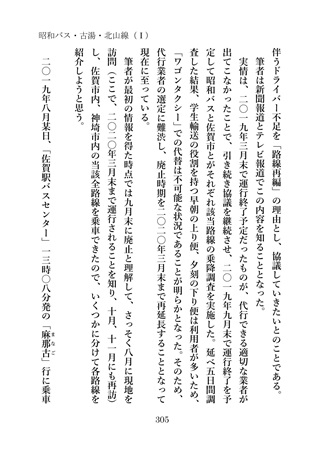 昭和バス・古湯・北山線（Ⅰ）
伴うドライバー不足を「路線再編」の理由とし、協議していきたいとのことである。
筆者は新聞報道とテレビ報道でこの内容を知ることとなった。
実情は、二〇一九年三月末で運行終了予定だったものが、代行できる適切な業者が
出てこなかったことで、引き続き協議を継続させ、二〇一九年九月末で運行終了を予
定して昭和バスと佐賀市とがそれぞれ該当路線の乗降調査を実施した。延べ五日間調
査した結果、学生輸送の役割を持つ早朝の上り便、夕刻の下り便は利用者が多いため、
「ワゴンタクシー」での代替は不可能な状況であることが明らかとなった。そのため、
代行業者の選定に難渋し、廃止時期を二〇二〇年三月末まで再延長することとなって
現在に至っている。
筆者が最初の情報を得た時点では九月末に廃止と理解して、さっそく八月に現地を
訪問（ここで、二〇二〇年三月末まで運行されることを知り、十月、十一月にも再訪）
し、佐賀市内、神埼市内の当該全路線を乗車できたので、いくつかに分けて各路線を
紹介しようと思う。
二〇一九年八月某日、「佐賀駅バスセンター」一三時〇八分発の「麻那古」行に乗車
まなこ
305